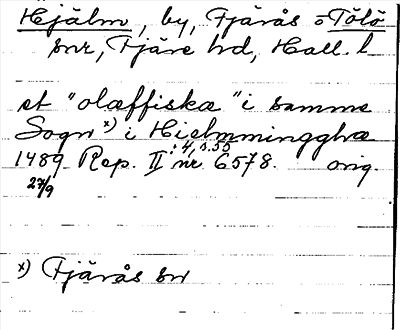 Hjälm, by, Fjärås o Tölö
snr, Fjäre hd, Hall. l
et "olæffiskæ" i samme
Sogn x) i Hielmmingghæ
1489 Rep. II : 4, s. 55 nr 6578. orig.
27/9
x) Fjärås sn